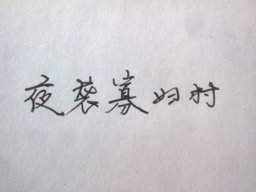 夜袭寡妇村